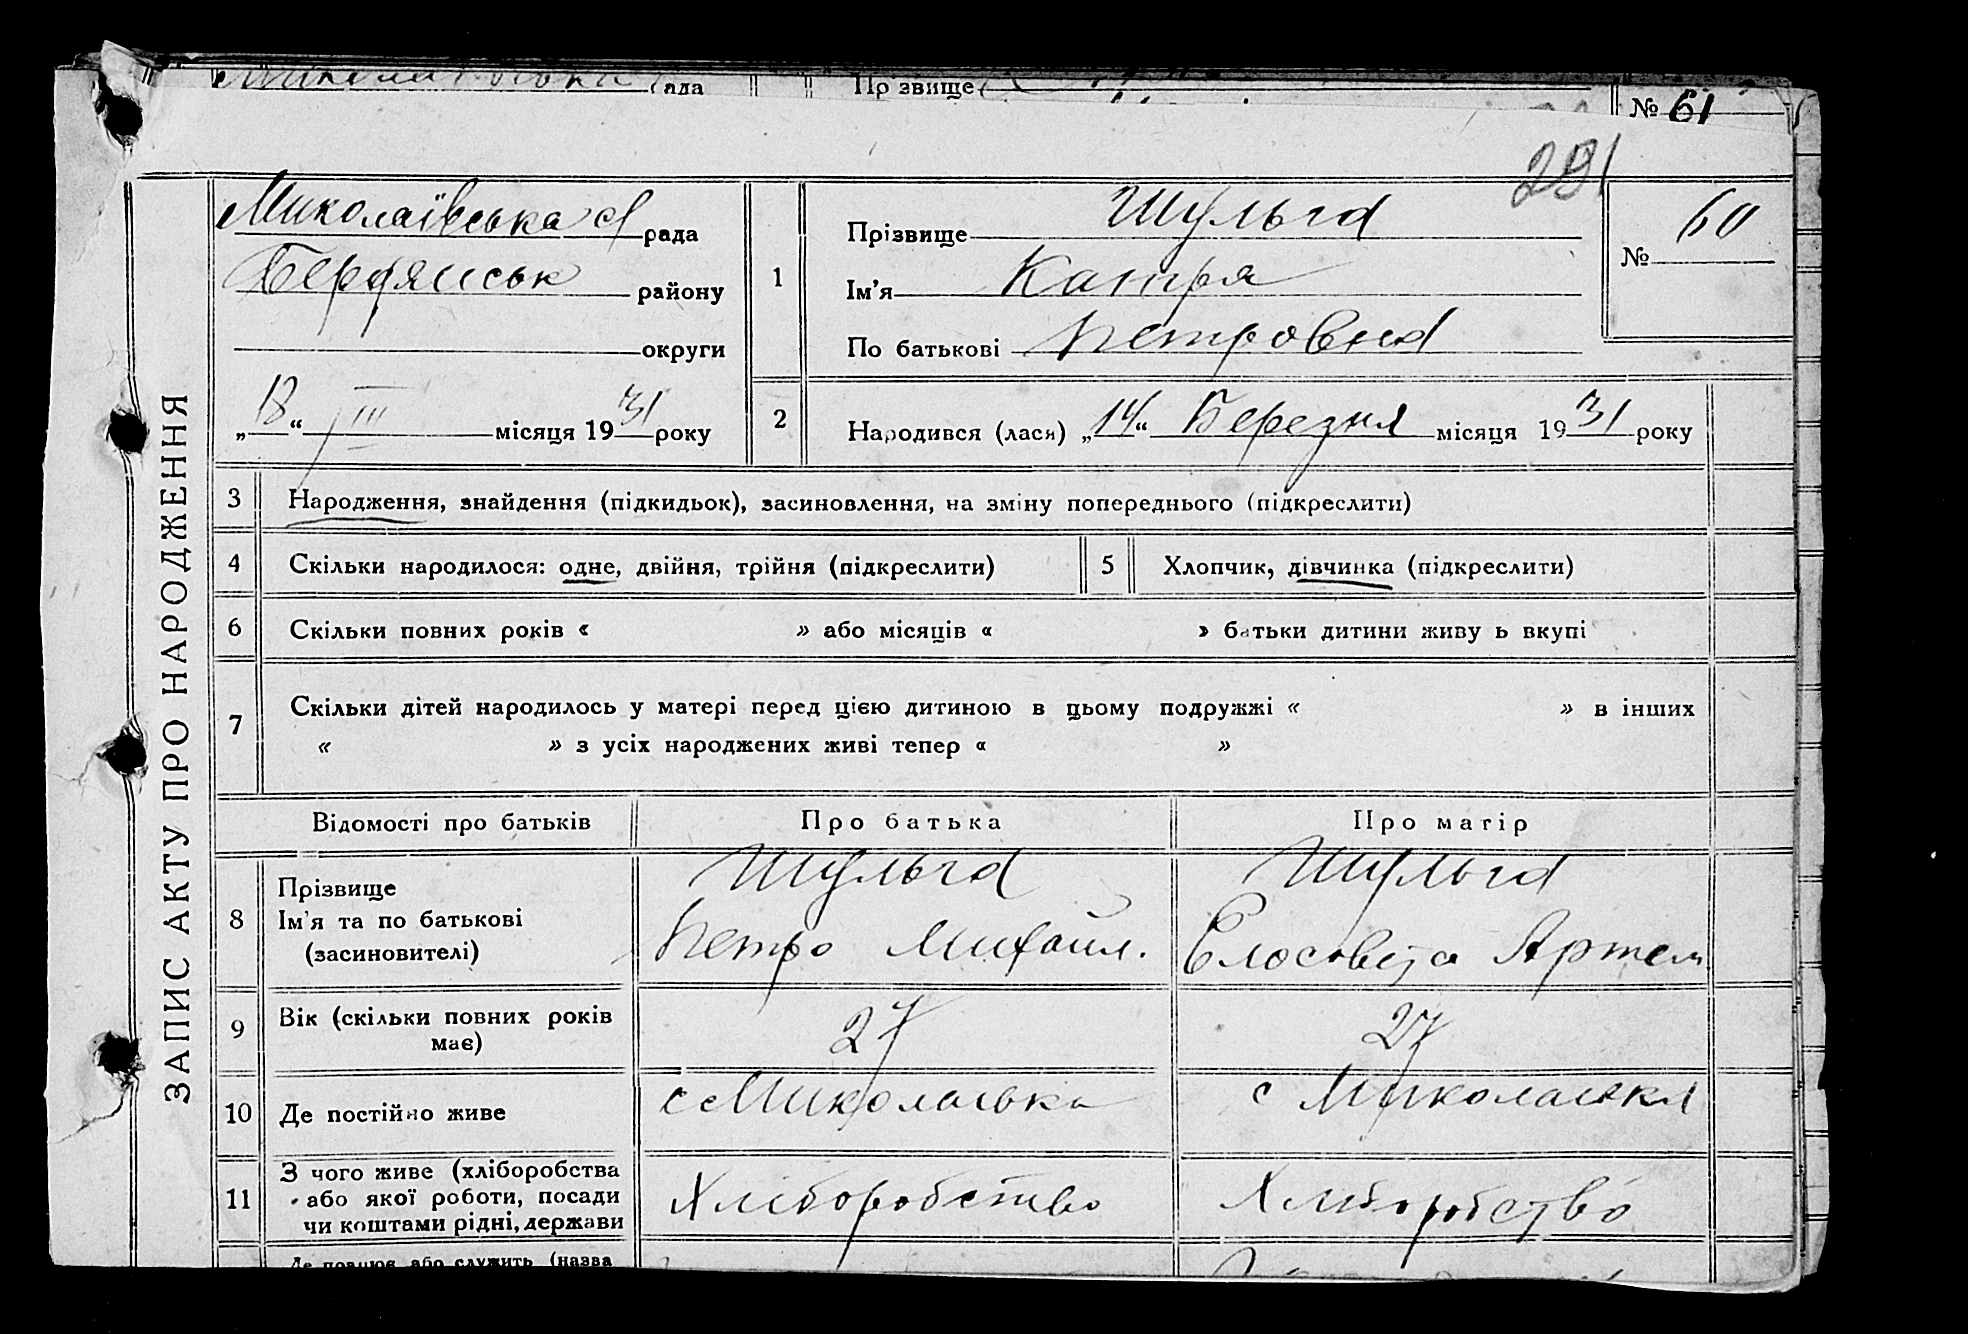 рада Прізвище
№ 61
291
Миколаївська с/ рада
Бердянськ району
округи
„18“ III місяця 1931 року
1
Прізвище Шульга
Ім'я Катря
По батькові Петровна
№ 60
2 Народився (лася) „14“ Березня місяця 1931 року
ЗАПИС АКТУ ПРО НАРОДЖЕННЯ
3 Народження, знайдення (підкидьок), засиновлення, на зміну попереднього (підкреслити)
4 Скільки народилося: одне, двійня, трійня (підкреслити) 5 Хлопчик, дівчинка (підкреслити)
6 Скільки повних років « » або місяців « » батьки дитини живу ь вкупі
7 Скільки дітей народилось у матері перед цією дитиною в цьому подружжі « » в інших
« » з усіх народжених живі тепер « »
Відомості про батьків Про батька Про матір
8 Прізвище
Ім'я та по батькові
(засиновителі)
Шульга
Петро Михайл.
Шульга
Єлосовета Артем
9 Вік (скільки повних років
має)
27 27
10 Де постійно живе с Миколаівка с Миколаівка
11 З чого живе (хліборобства
або якої роботи, посади
чи коштами рідні, держави
Хліборобство Хліборобство
Де працює або служить (назва